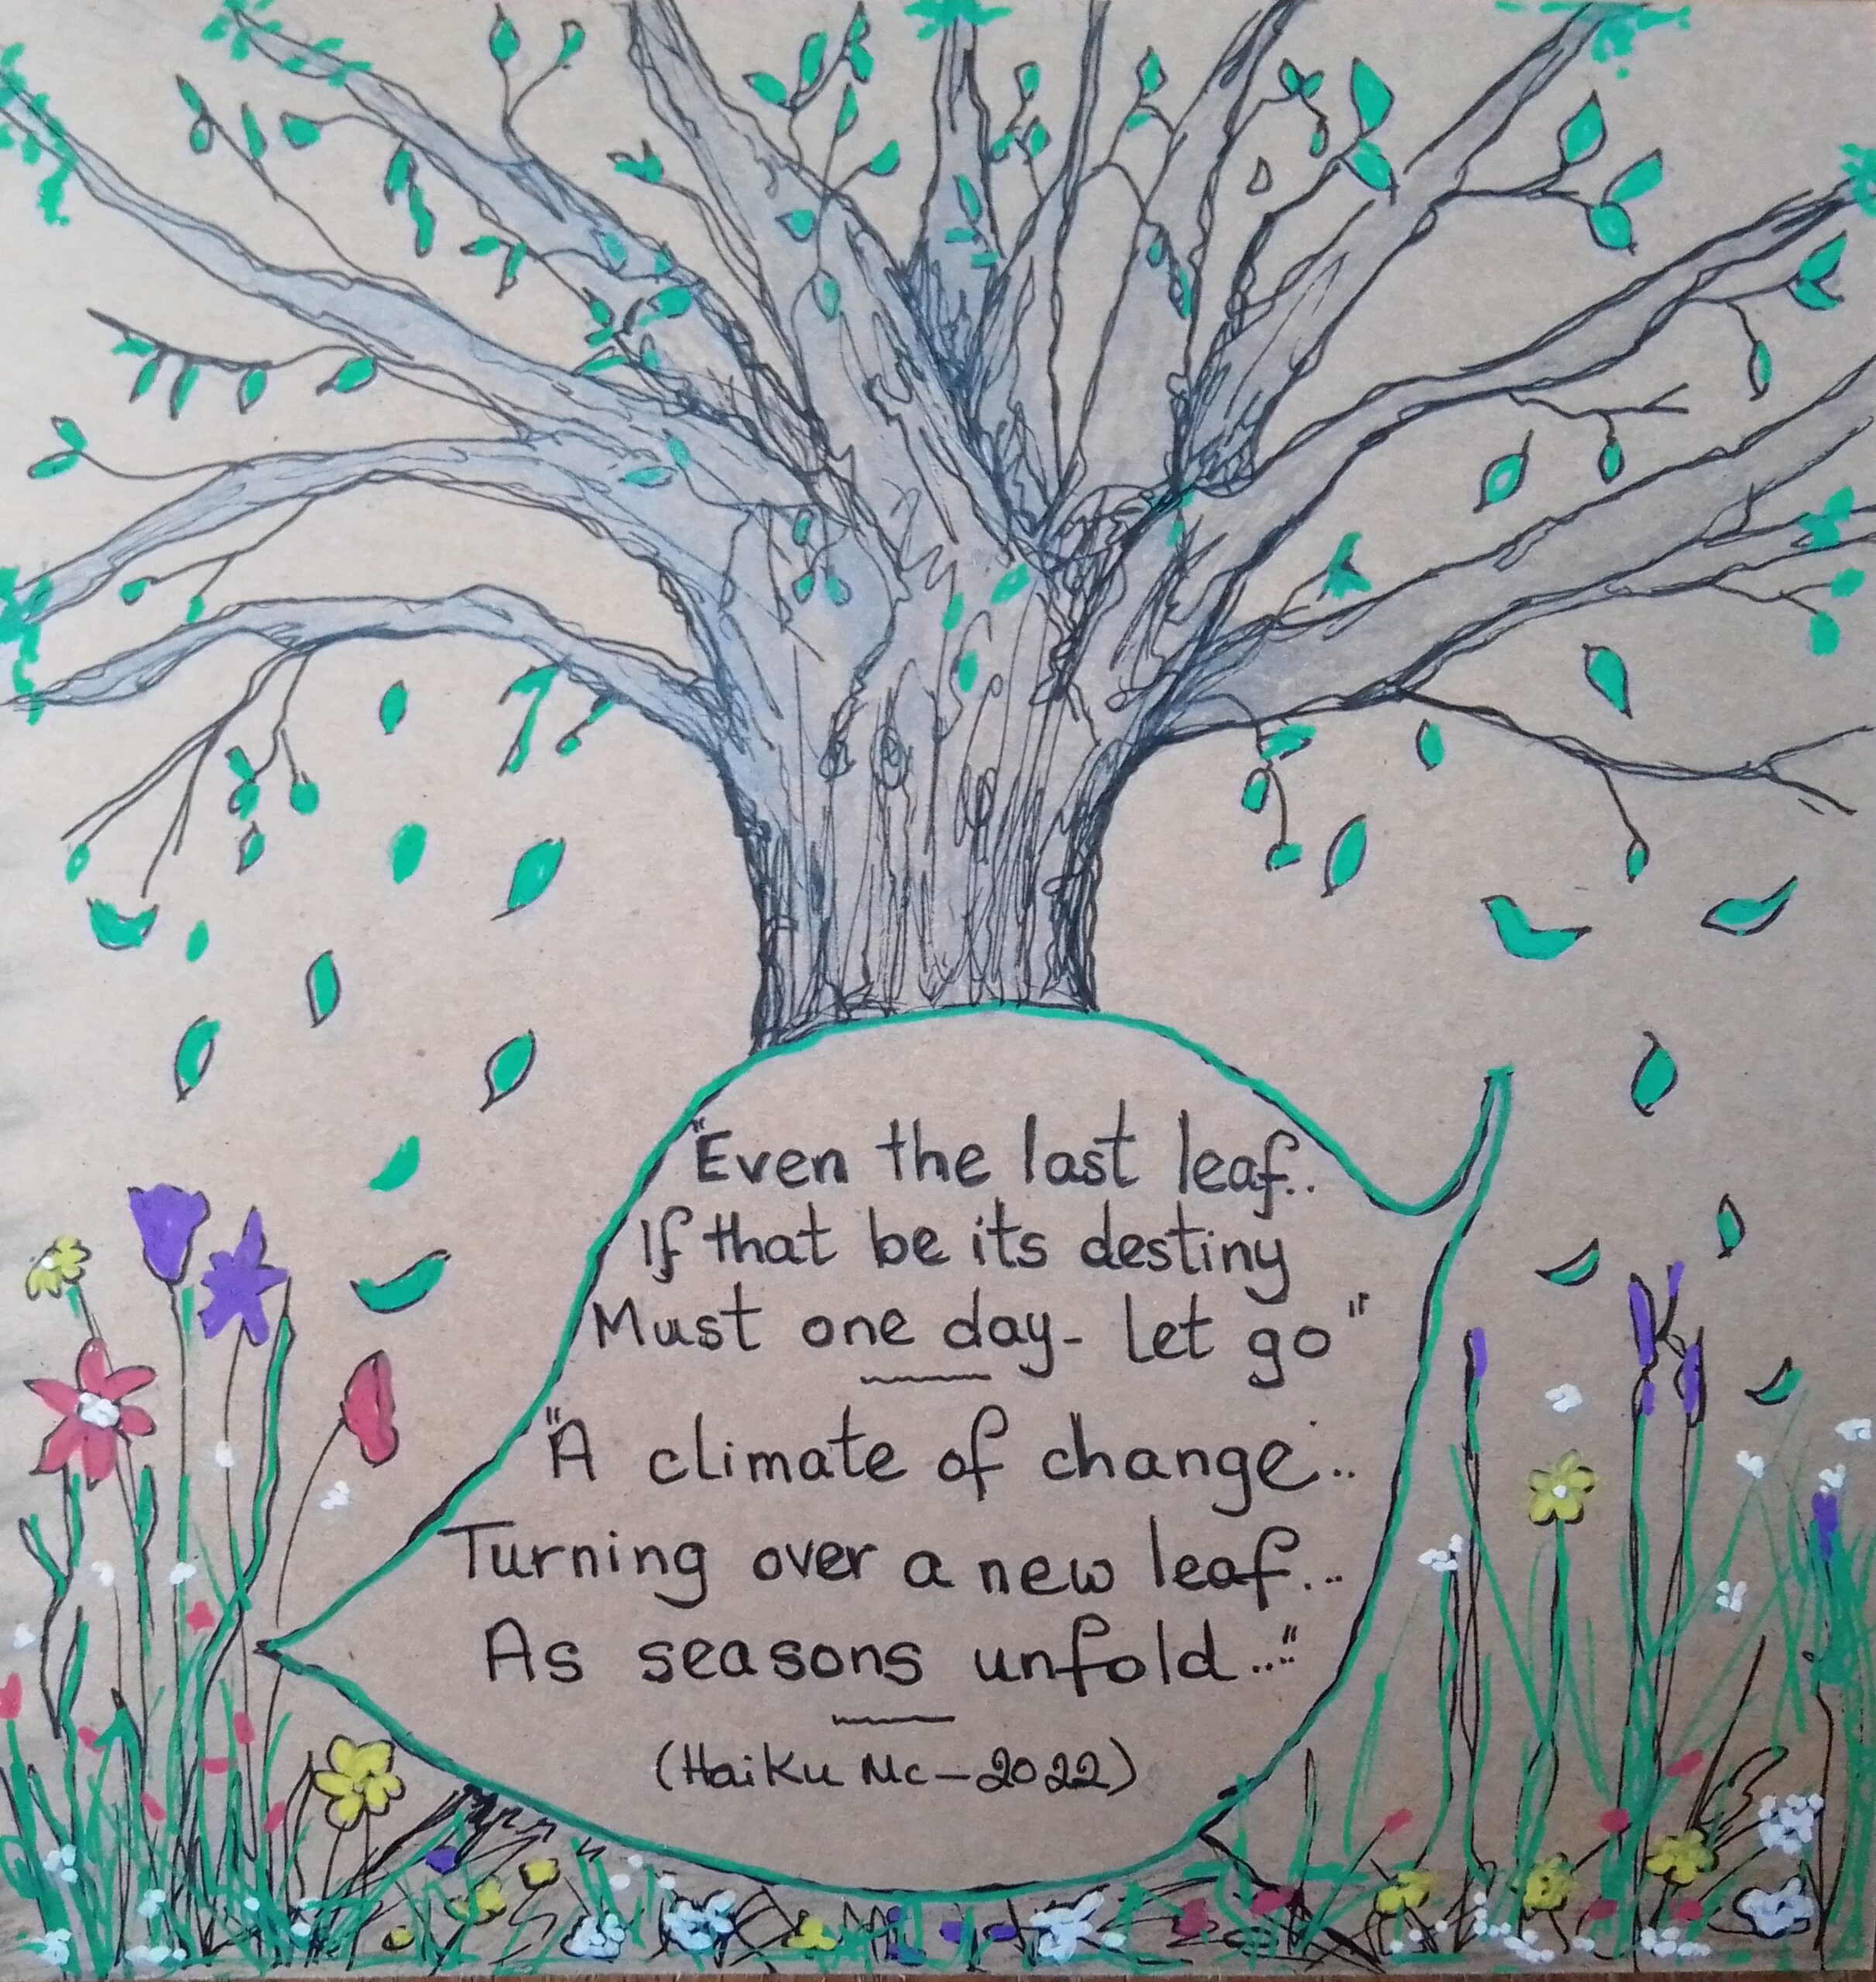 "Even the last leaf..
If that be its destiny
Must one day - Let go"
"A climate of change...
Turning over a new leaf...
As seasons unfold..."
(Haiku Mc - 2022)